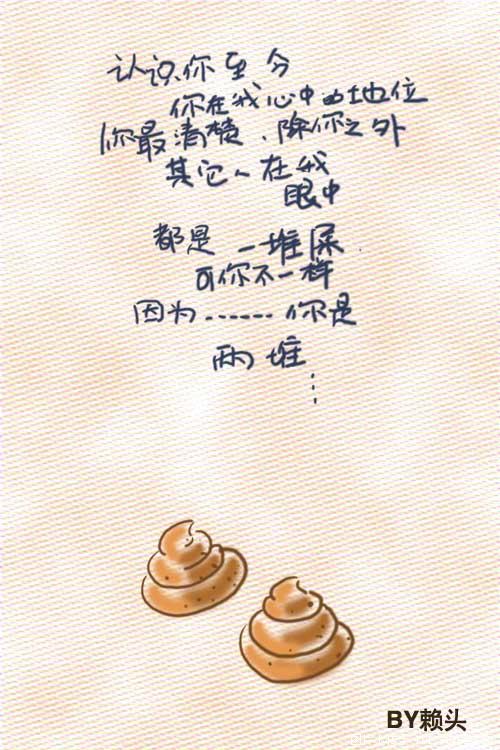 认识你至今
你在我心中的地位
你最清楚、除你之外
其它人在我
眼中
都是一堆屎.
可你不一样
因为……你是
两堆
⋮
BY赖头